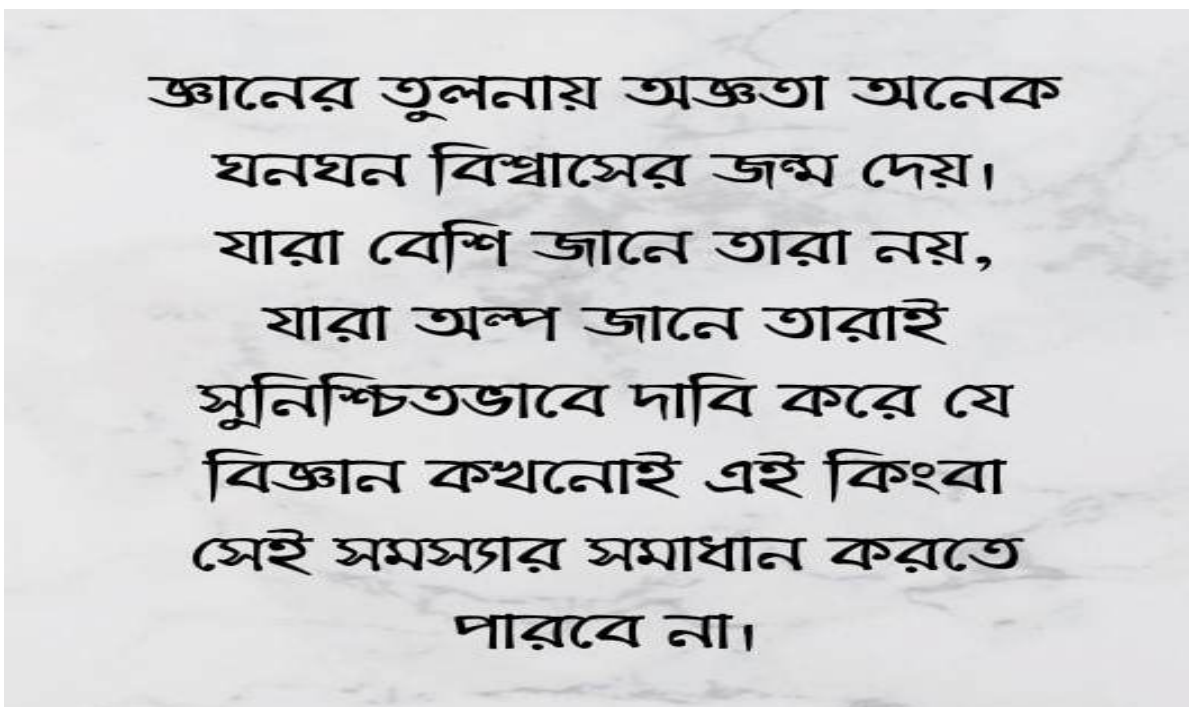 জ্ঞানের তুলনায় অজ্ঞতা অনেক
ঘনঘন বিশ্বাসের জন্ম দেয়।
যারা বেশি জানে তারা নয়,
যারা অল্প জানে তারাই
সুনিশ্চিতভাবে দাবি করে যে
বিজ্ঞান কখনোই এই কিংবা
সেই সমস্যার সমাধান করতে
পারবে না।